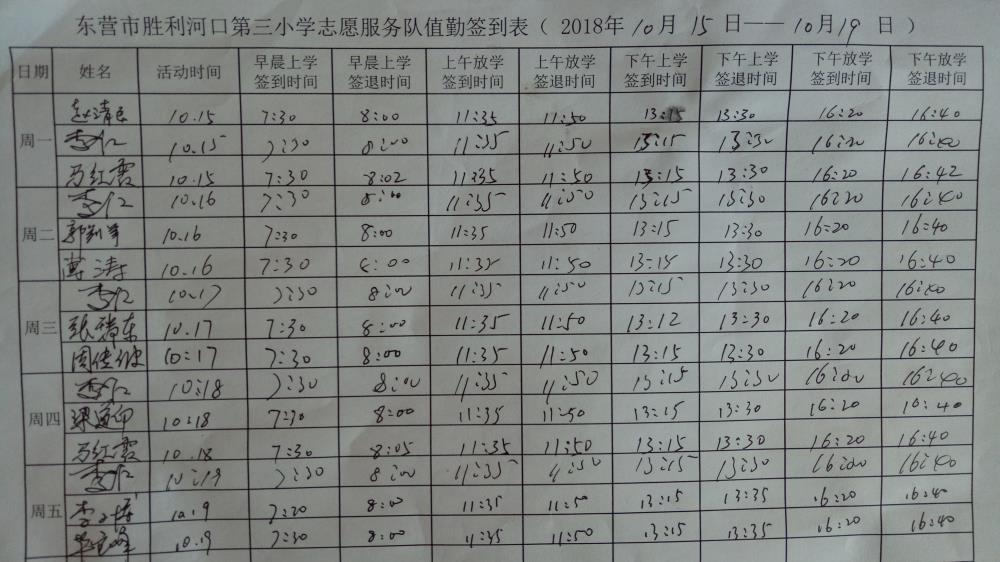 东营市胜利河口第三小学志愿服务队值勤签到表（2018年10月15日——10月19日）
日期 姓名 活动时间 早晨上学签到时间 早晨上学签退时间 上午放学签到时间 上午放学签退时间 下午上学签到时间 下午上学签退时间 下午放学签到时间 下午放学签退时间
周一 赵清良 10.15 7:30 8:00 11:35 11:50 13:15 13:30 16:20 16:40
李仁 10.15 7:30 8:00 11:35 11:50 13:15 13:30 16:20 16:40
马红霞 10.15 7:30 8:02 11:35 11:50 13:15 13:30 16:20 16:42
周二 李仁 10.16 7:30 8:00 11:35 11:50 13:15 13:30 16:20 16:40
郭 10.16 7:30 8:00 11:35 11:50 13:15 13:30 16:20 16:40
涛 10.16 7:30 8:00 11:35 11:50 13:15 13:30 16:20 16:40
周三 李仁 10.17 7:30 8:00 11:35 11:50 13:15 13:30 16:20 16:40
张瑞东 10.17 7:30 8:00 11:35 11:50 13:12 13:30 16:20 16:40
周佳 10:17 7:30 8:00 11:35 11:50 13:15 13:30 16:20 16:40
周四 李仁 10:18 7:30 8:00 11:35 11:50 13:15 13:30 16:20 16:40
梁 10:18 7:30 8:00 11:35 11:50 13:15 13:30 16:20 16:40
马红霞 10.18 7:30 8:05 11:35 11:50 13:15 13:30 16:20 16:40
周五 李仁 10:19 7:30 8:00 11:35 11:50 13:15 13:30 16:20 16:40
李 10.19 7:20 8:00 11:35 11:50 13:15 13:35 16:20 16:40
10.19 7:30 8:00 11:35 11:50 13:15 13:35 16:20 16:40